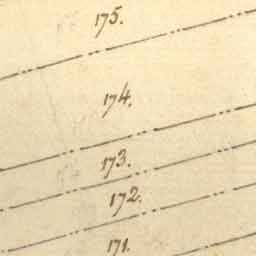 175.
174.
173.
172.
171.